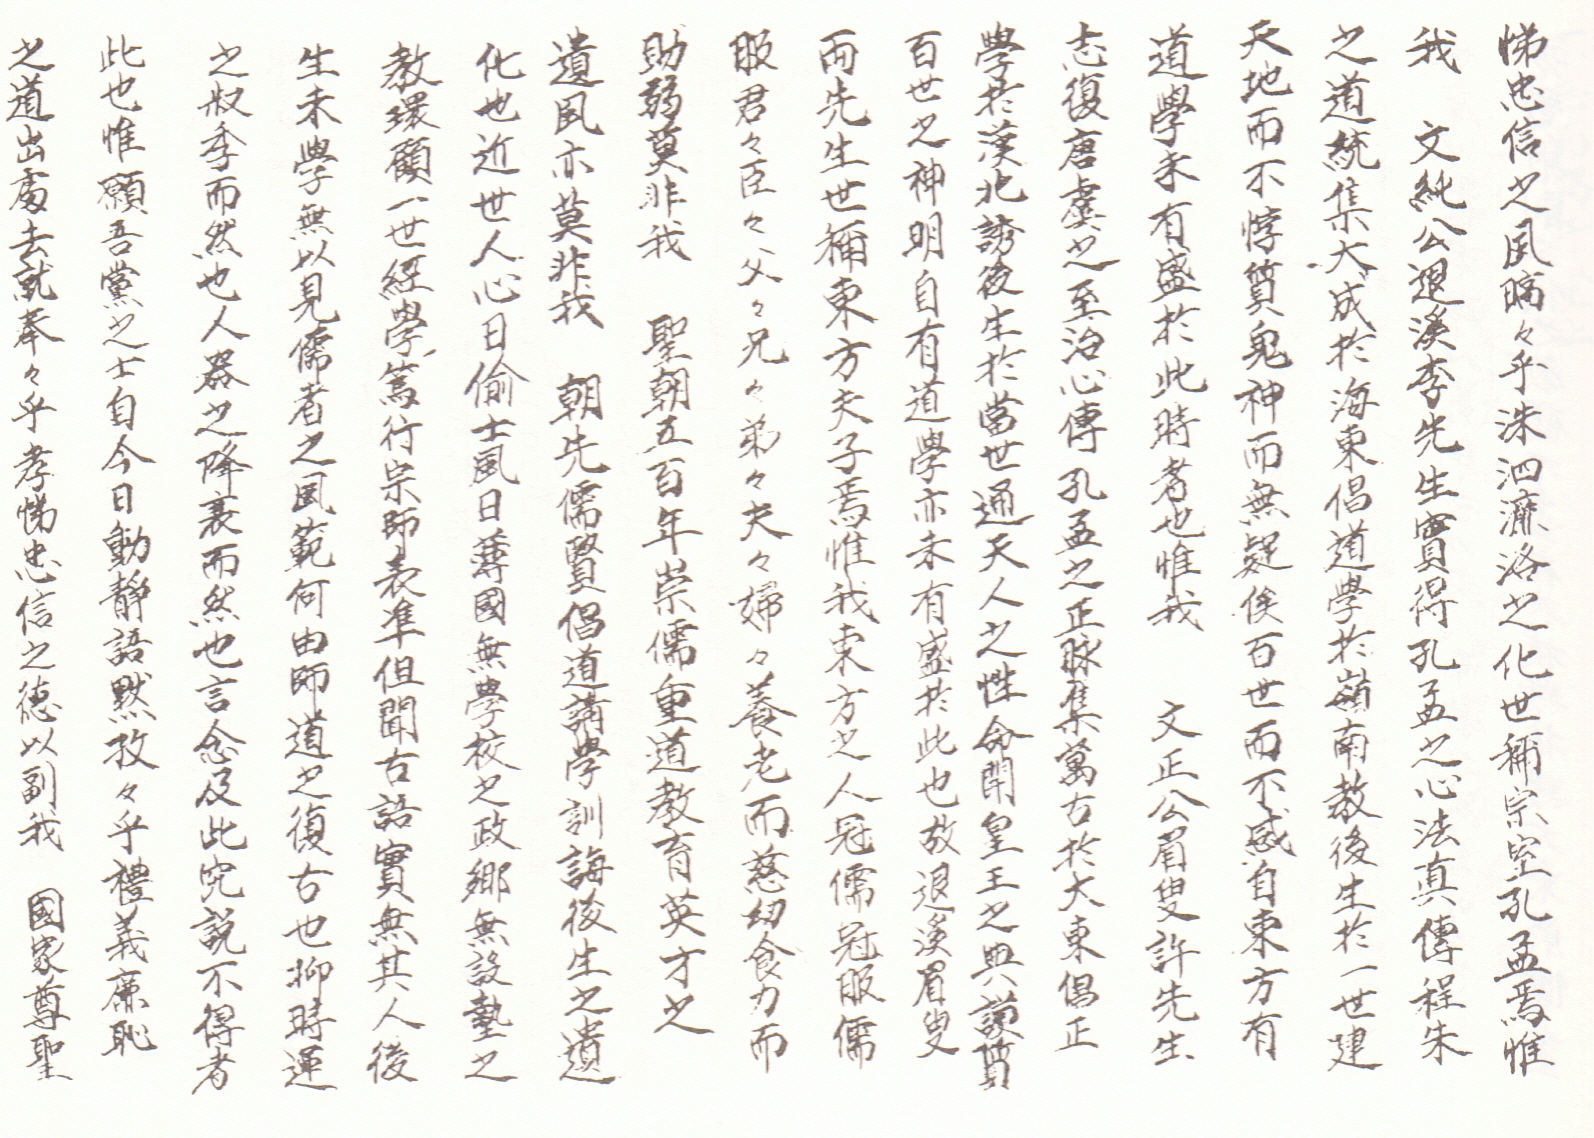 悌忠信之風皜々乎洙泗濂洛之化世稱宗空孔孟焉惟
我 文純公退溪李先生實得孔孟之心法真傳程朱
之道統集大成於海東倡道學於嶺南教後生於一世建
天地而不悖質鬼神而無疑俟百世而不惑自東方有
道學未有盛於此時者也惟我 文正公眉叟許先生
志復唐虞之至治心傳孔孟之正脉集萬古於大東倡正
學於漢北誘後生於當世通天人之性命開皇王之典謨質
百世之神明自有道學亦未有盛於此也故退溪眉叟
兩先生世稱東方夫子焉惟我東方之人冠儒冠服儒
服君々臣々父々兄々弟々夫々婦々養老而慈幼食力而
助弱莫非我 聖朝五百年崇儒重道教育英才之
遺風亦莫非我 朝先儒賢倡道講學訓誨後生之遺
化也近世人心日偷士風日薄國無學校之政鄉無設塾之
教環顧一世經學篤行宗師表準但聞古語實無其人後
生未學無以見儒者之風範何由師道之復古也抑時運
之叔季而然也人器之降衰而然也言念及此究說不得者
此也惟願吾黨之士自今日動靜語默孜々乎禮義廉恥
之道出處去就拳々乎孝悌忠信之德以副我 國家尊聖